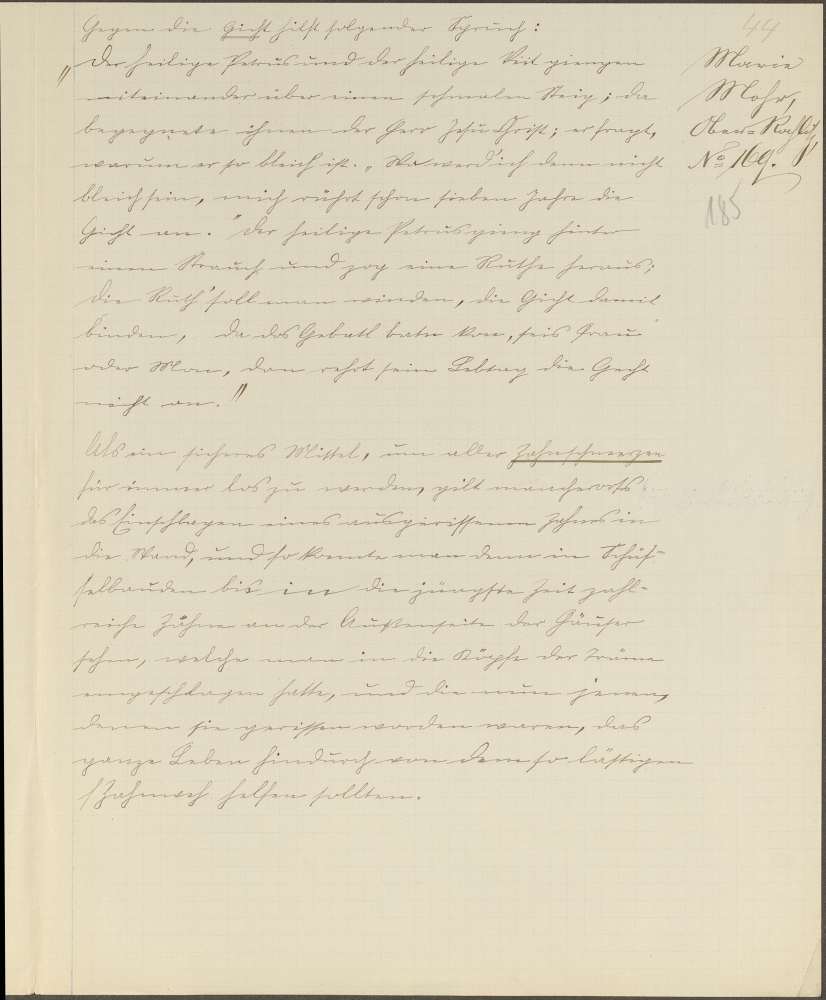 44
Gegen die Gicht hilft folgender Spruch:
„Der heilige Petrus und der heilige Veit giengen
miteinander über einen schmalen Steig; da
begegnete ihnen der Herr Jesu Christ; er fragt,
warum er so bleich ist. „Wa werd' ich denn nicht
bleich sein, mich rührt schon sieben Jahre die
Gicht an." Der heilige Petrus gieng hinter
einen Strauch und zog eine Ruthe heraus;
die Ruth' soll man winden, die Gicht damit
binden, da das Gebatl batn kon, seis Frau
oder Mon, dan rehrt sein Lebtag die Gecht
nicht an."
Marie
Mohr,
Ober-
No 169.
185
Als ein sicheres Mittel, um aller Zahnschmerzen
für immer los zu werden, gilt mancherorts
das Einschlagen eines ausgerissenen Zahnes in
die Wand, und so konnte man denn in Schüs-
selbauden bis in die jüngste Zeit zahl-
reiche Zähne an der Außenseite der Häuser
sehen, welche man in die Köpfe der Träme
eingeschlagen hatte, und die nun jenen,
denen sie gerissen worden waren, das
ganze Leben hindurch von dem so lästigen
Zahnweh helfen sollten.